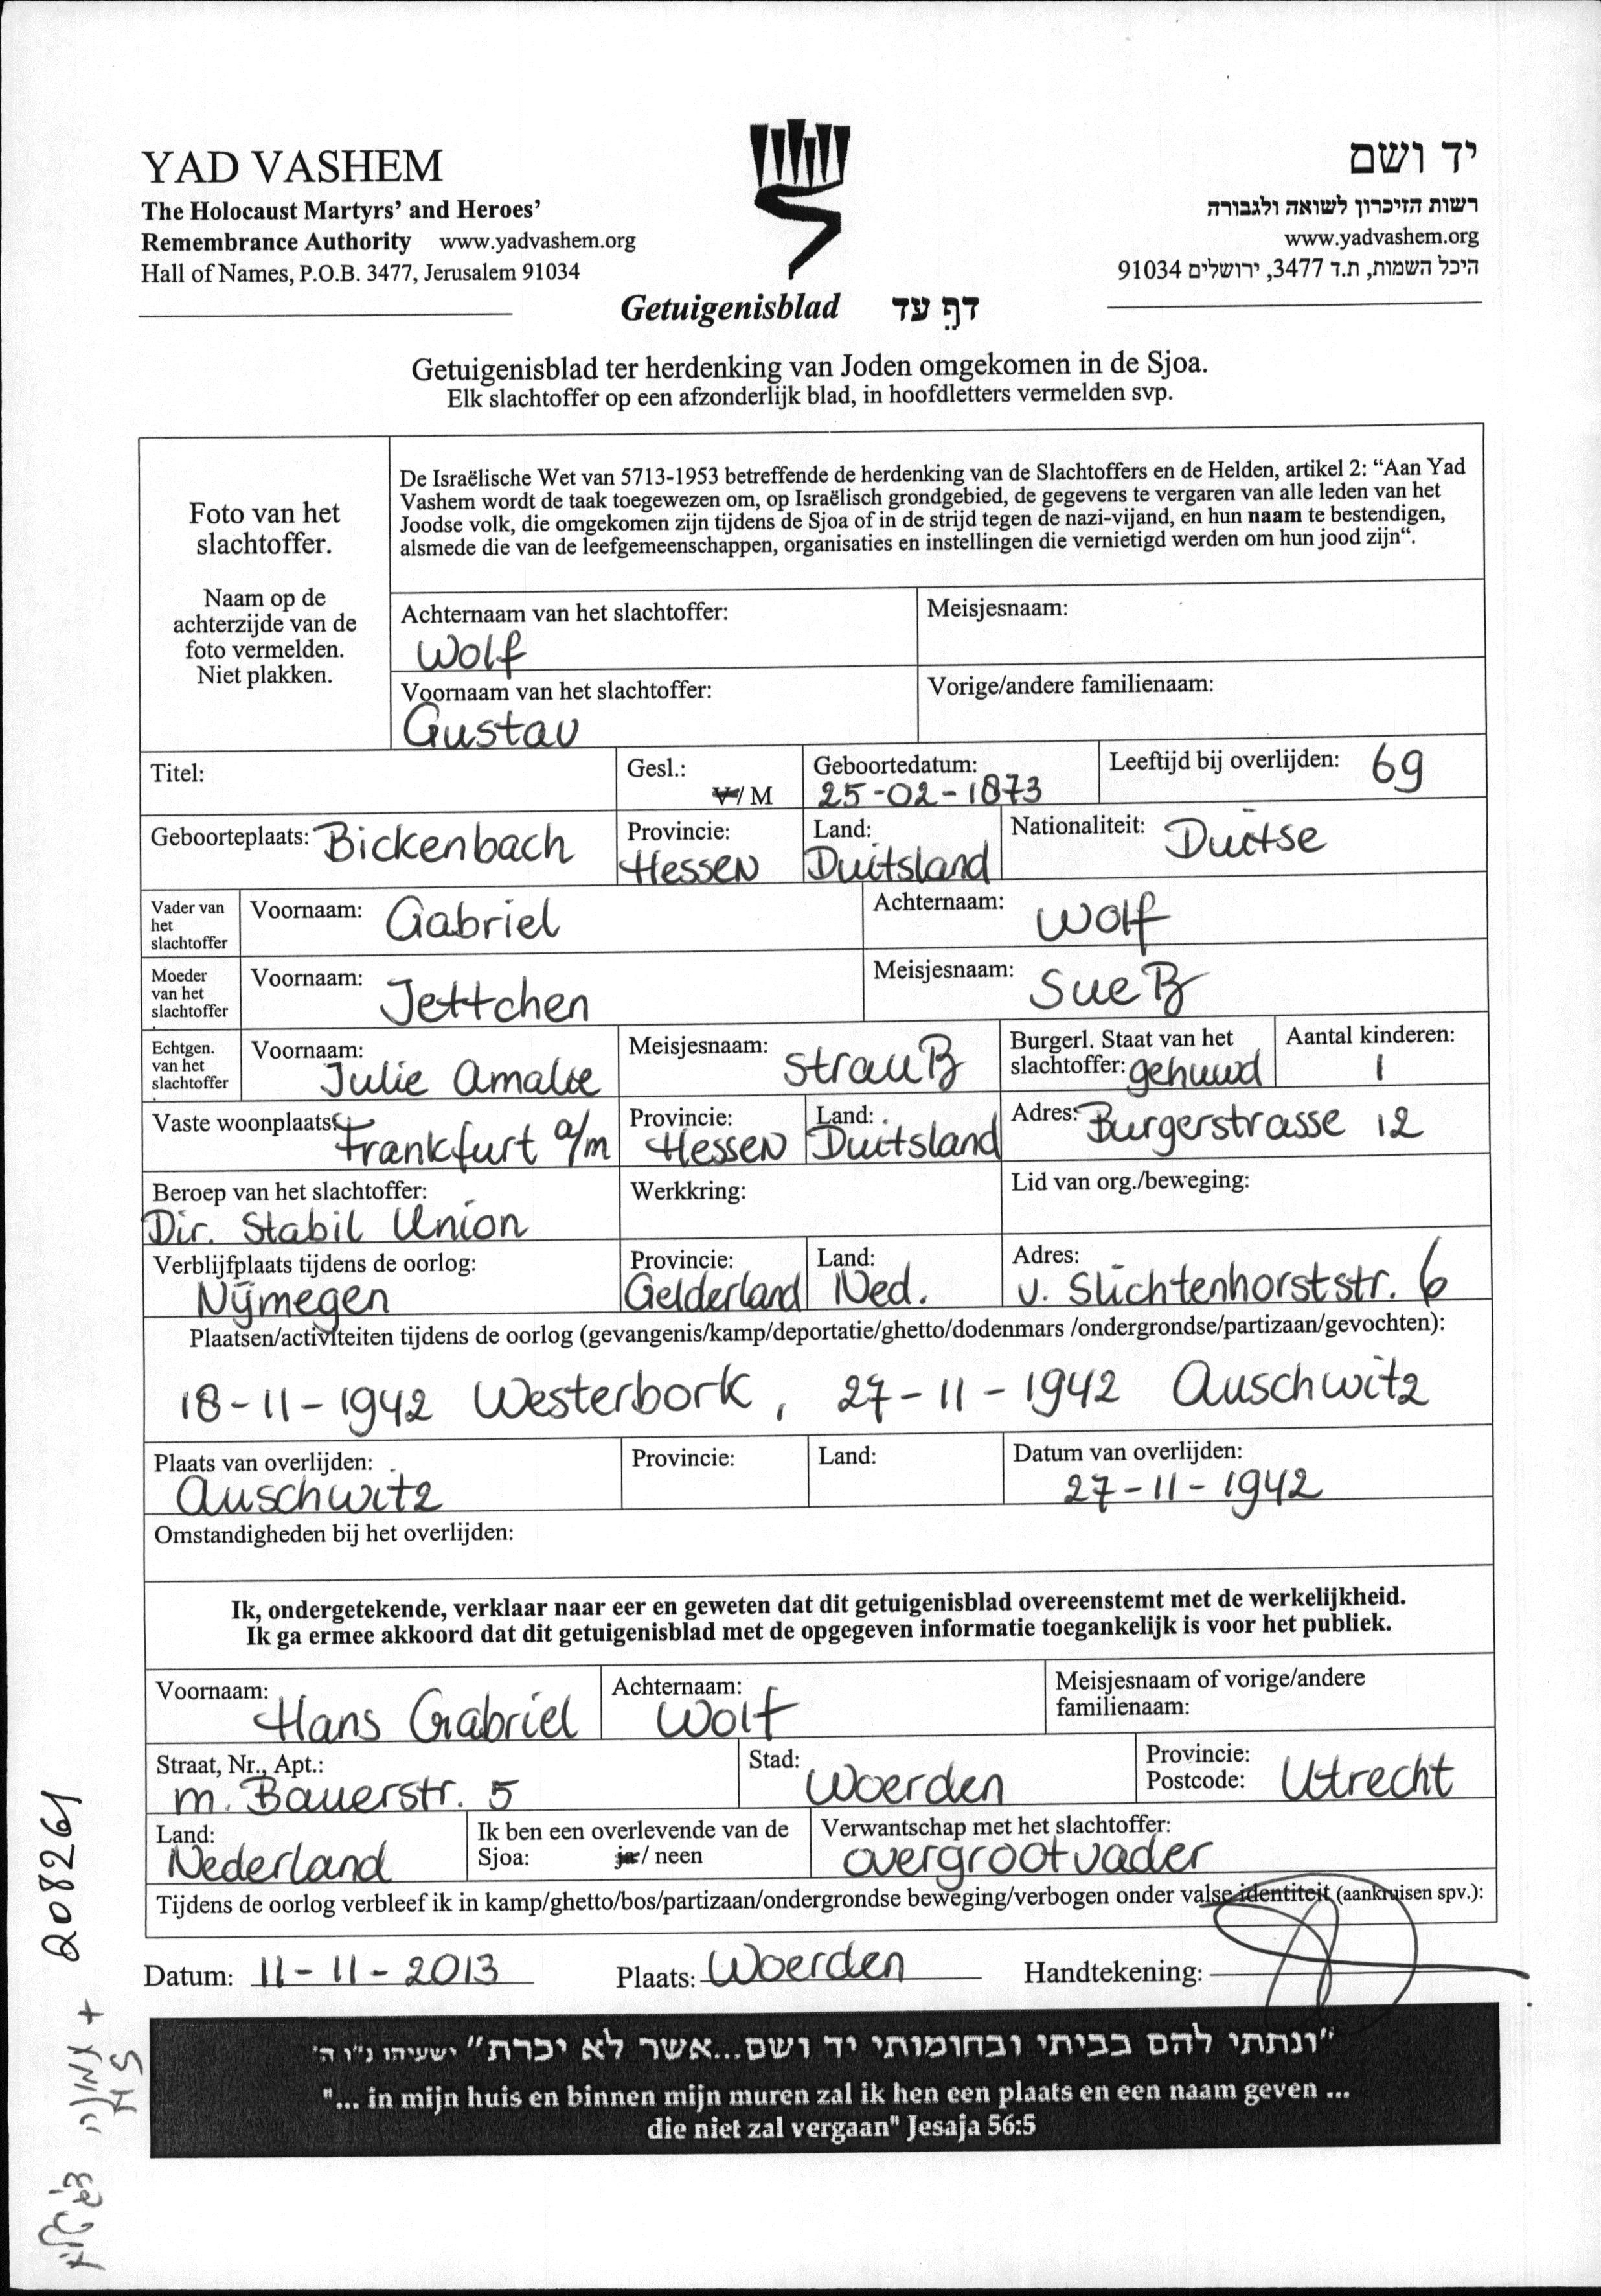 YAD VASHEM
The Holocaust Martyrs’ and Heroes’
Remembrance Authority www.yadvashem.org
Hall of Names, P.O.B. 3477, Jerusalem 91034
יד ושם
רשות הזיכרון לשואה ולגבורה
www.yadvashem.org
היכל השמות, ת.ד 3477, ירושלים 91034
Getuigenisblad דף עד
Getuigenisblad ter herdenking van Joden omgekomen in de Sjoa.
Elk slachtoffer op een afzonderlijk blad, in hoofdletters vermelden svp.
Foto van het
slachtoffer.
Naam op de
achterzijde van de
foto vermelden.
Niet plakken.
De Israëlische Wet van 5713-1953 betreffende de herdenking van de Slachtoffers en de Helden, artikel 2: “Aan Yad
Vashem wordt de taak toegewezen om, op Israëlisch grondgebied, de gegevens te vergaren van alle leden van het
Joodse volk, die omgekomen zijn tijdens de Sjoa of in de strijd tegen de nazi-vijand, en hun naam te bestendigen,
alsmede die van de leefgemeenschappen, organisaties en instellingen die vernietigd werden om hun jood zijn“.
Achternaam van het slachtoffer: Meisjesnaam:
Wolf
Voornaam van het slachtoffer: Vorige/andere familienaam:
Gustav
Titel: Gesl.: V/ M Geboortedatum: 25-02-1873 Leeftijd bij overlijden: 69
Geboorteplaats: Bickenbach Provincie: Hessen Land: Duitsland Nationaliteit: Duitse
Vader van het slachtoffer Voornaam: Gabriel Achternaam: Wolf
Moeder van het slachtoffer Voornaam: Jettchen Meisjesnaam: Sueß
Echtgen. van het slachtoffer Voornaam: Julie Amalie Meisjesnaam: Strauß Burgerl. Staat van het slachtoffer: gehuwd Aantal kinderen: 1
Vaste woonplaats: Frankfurt a/m Provincie: Hessen Land: Duitsland Adres: Burgerstrasse 12
Beroep van het slachtoffer: Werkkring: Lid van org./beweging:
Dir. Stabil Union
Verblijfplaats tijdens de oorlog: Provincie: Land: Adres:
Nijmegen Gelderland Ned. v. Slichtenhorststr. 6
Plaatsen/activiteiten tijdens de oorlog (gevangenis/kamp/deportatie/ghetto/dodenmars /ondergrondse/partizaan/gevochten):
18-11-1942 Westerbork, 27-11-1942 Auschwitz
Plaats van overlijden: Provincie: Land: Datum van overlijden:
Auschwitz 27-11-1942
Omstandigheden bij het overlijden:
Ik, ondergetekende, verklaar naar eer en geweten dat dit getuigenisblad overeenstemt met de werkelijkheid.
Ik ga ermee akkoord dat dit getuigenisblad met de opgegeven informatie toegankelijk is voor het publiek.
Voornaam: Hans Gabriel Achternaam: Wolf Meisjesnaam of vorige/andere familienaam:
Straat, Nr., Apt.: m. Bauerstr. 5 Stad: Woerden Provincie: Postcode: Utrecht
Land: Nederland Ik ben een overlevende van de Sjoa: ja/ neen Verwantschap met het slachtoffer: overgrootvader
Tijdens de oorlog verbleef ik in kamp/ghetto/bos/partizaan/ondergrondse beweging/verbogen onder valse identiteit (aankruisen spv.):
Datum: 11-11-2013 Plaats: Woerden Handtekening:
“ונתתי להם בביתי ובחומותי יד ושם...אשר לא יכרת” ישעיהו נ"ו ה'
"... in mijn huis en binnen mijn muren zal ik hen een plaats en een naam geven ...
die niet zal vergaan" Jesaja 56:5
208261